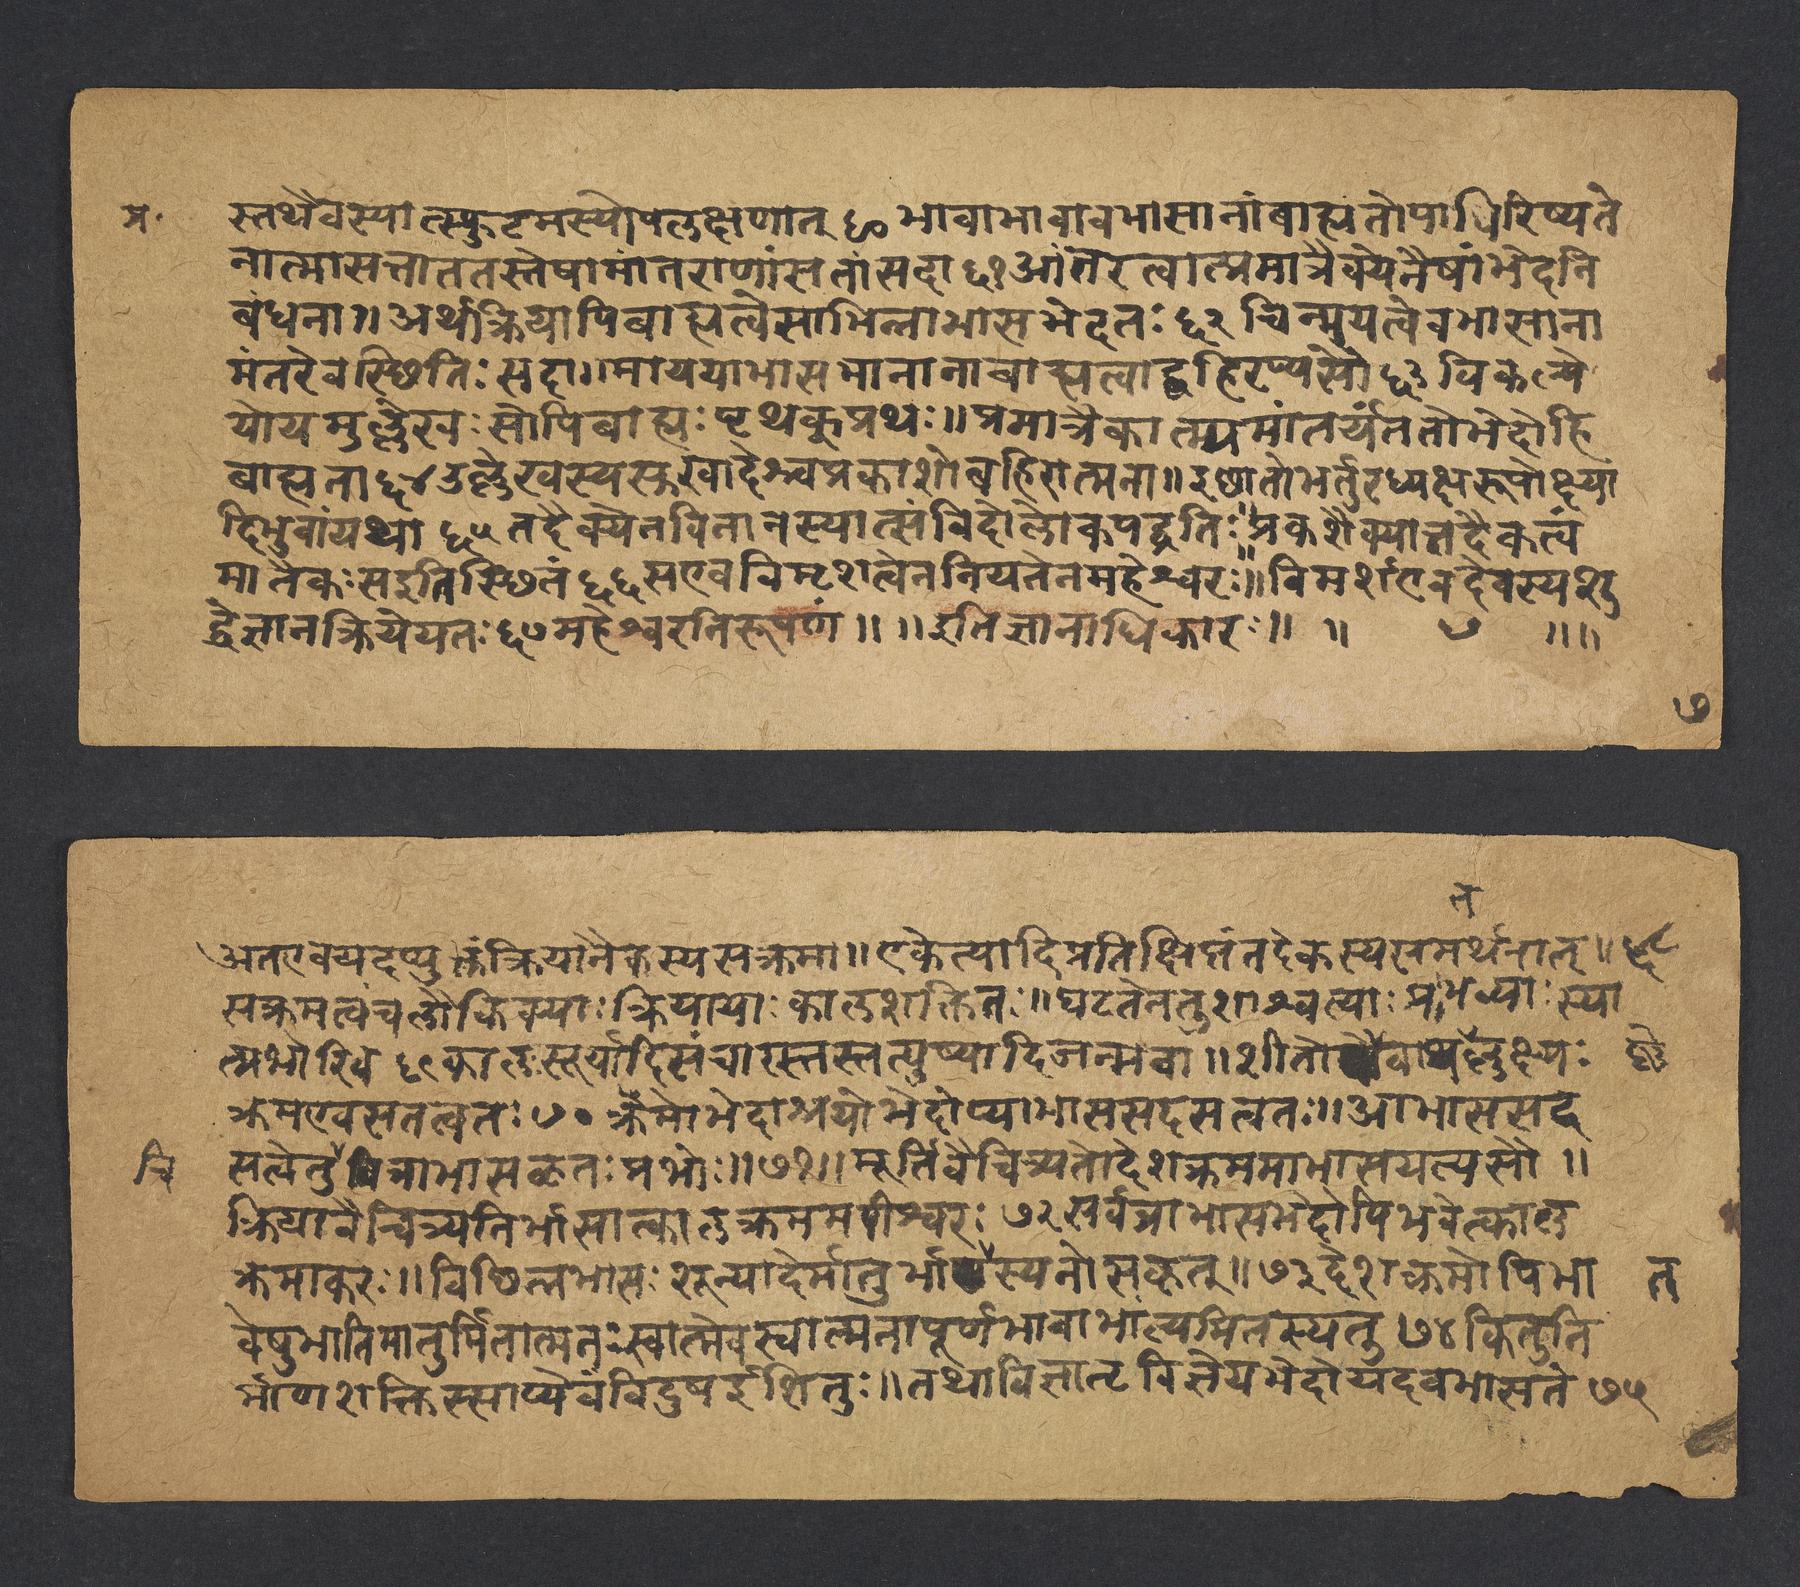 प्र॰ स्तथैवस्यात्स्फुटमस्योपलक्षणात् ६० भावाभावावभासानांबाह्यतोपाधिरिष्यते
नात्मासत्ताततस्तेषामांतराणांसतांसदा ६१ आंतरत्वात्प्रमात्रैक्येनैषांभेदनि
बंधना॥ अर्थक्रियापिबाह्यत्वेसाभिन्नाभासभेदतः ६२ चिन्मयत्वेवभासाना
मंतरेवस्थितिः सदा॥ माययाभासमानानांबाह्यत्वाद्बहिरप्यसौ ६३ विकल्पे
योयमुल्लेखः सोपिबाह्यः पृथक्प्रथः॥ प्रमात्रैकात्म्यमांतर्यंततोभेदोहि
बाह्यता ६४ उल्लेखस्यसुखादेश्चप्रकाशोबहिरात्मना॥ इछातोभर्तुरध्यक्षरूपोक्ष्या
दिभुवांयथा ६५ तदैक्येनविनानस्यात्संविदांलोकपद्धतिः॥ प्रकाशैक्यात्तदैकत्वं
मातैकः सइतिस्थितं ६६ सएवविमृशत्वेननियतेनमहेश्वरः॥ विमर्शएवदेवस्यशु
द्धेज्ञानक्रियेयतः ६७ महेश्वरनिरूपणं ॥ ॥ इतिज्ञानाधिकारः ॥ ॥ ७ ॥॥
७
त
अतएवयदप्युक्तंक्रियानैकस्यसक्रमा॥ एकेत्यादिप्रतिक्षिप्तंतदेकस्यसमर्थनात् ॥ ६८
सक्रमत्वंचलौकिक्याः क्रियायाः कालशक्तितः॥ घटतेनतुशाश्वत्याः प्राभव्याः स्या
त्प्रभोरिव ६९ कालः सूर्यादिसंचारस्तत्तत्पुष्पादिजन्मवा॥ शीतोष्णेवाथतल्लक्ष्यः ष्णे
क्रमएवसतत्वतः ७० क्रमोभेदाश्रयोभेदोप्याभाससदसत्वतः॥ आभाससद
चि सत्वेतुचित्राभासकृतः प्रभोः॥ ७१॥ मूर्तिवैचित्र्यतोदेशक्रममाभासयत्यसौ ॥
क्रियावैचित्र्यनिर्भासात्कालक्रममपीश्वरः ७२ सर्वत्राभासभेदोपिभवेत्काल
क्रमाकरः॥ विछिन्नभासः शून्यादेर्मातुर्भातस्यनोसकृत् ॥ ७३ देशक्रमोपिभा त
वेषुभातिमातुर्मितात्मनः स्वात्मेवस्वात्मनापूर्णभावाभांत्यमितस्यतु ७४ किंतुनि
र्माणशक्तिस्साप्येवंविदुषईशितुः॥ तथाविज्ञातृविज्ञेयभेदोयदवभासते ७५